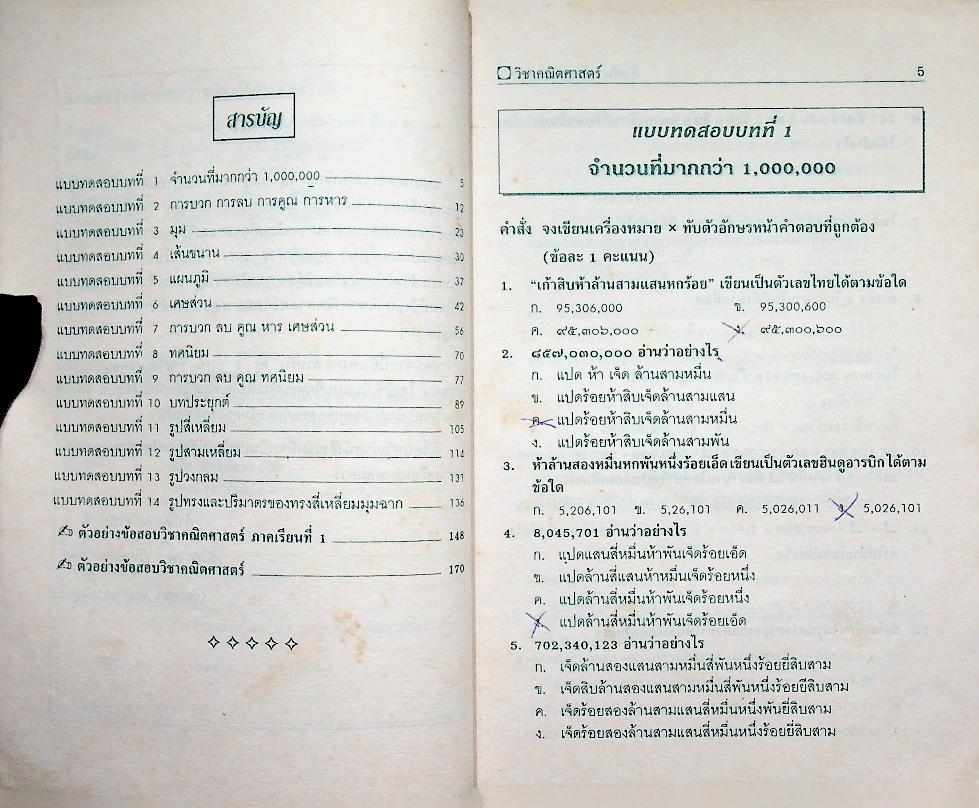 สารบัญ
แบบทดสอบบทที่ 1 จำนวนที่มากกว่า 1,000,000 5
แบบทดสอบบทที่ 2 การบวก การลบ การคูณ การหาร 12
แบบทดสอบบทที่ 3 มุม 23
แบบทดสอบบทที่ 4 เส้นขนาน 30
แบบทดสอบบทที่ 5 แผนภูมิ 37
แบบทดสอบบทที่ 6 เศษส่วน 42
แบบทดสอบบทที่ 7 การบวก ลบ คูณ หาร เศษส่วน 56
แบบทดสอบบทที่ 8 ทศนิยม 70
แบบทดสอบบทที่ 9 การบวก ลบ คูณ ทศนิยม 77
แบบทดสอบบทที่ 10 บทประยุกต์ 89
แบบทดสอบบทที่ 11 รูปสี่เหลี่ยม 105
แบบทดสอบบทที่ 12 รูปสามเหลี่ยม 114
แบบทดสอบบทที่ 13 รูปวงกลม 131
แบบทดสอบบทที่ 14 รูปทรงและปริมาตรของทรงสี่เหลี่ยมมุมฉาก 136
ตัวอย่างข้อสอบวิชาคณิตศาสตร์ ภาคเรียนที่ 1 148
ตัวอย่างข้อสอบวิชาคณิตศาสตร์ 170
วิชาคณิตศาสตร์ 5
แบบทดสอบบทที่ 1
จำนวนที่มากกว่า 1,000,000
คำสั่ง จงเขียนเครื่องหมาย × ทับตัวอักษรหน้าคำตอบที่ถูกต้อง
(ข้อละ 1 คะแนน)
1. "เก้าสิบห้าล้านสามแสนหกร้อย" เขียนเป็นตัวเลขไทยได้ตามข้อใด
ก. 95,306,000 ข. 95,300,600
ค. ๙๕,๓๐๖,๐๐๐ ง. ๙๕,๓๐๐,๖๐๐
2. ๘๕๗,๐๓๐,๐๐๐ อ่านว่าอย่างไร
ก. แปด ห้า เจ็ด ล้านสามหมื่น
ข. แปดร้อยห้าสิบเจ็ดล้านสามแสน
ค. แปดร้อยห้าสิบเจ็ดล้านสามหมื่น
ง. แปดร้อยห้าสิบเจ็ดล้านสามพัน
3. ห้าล้านสองหมื่นหกพันหนึ่งร้อยเอ็ดเขียนเป็นตัวเลขฮินดูอารบิกได้ตาม
ข้อใด
ก. 5,206,101 ข. 5,26,101 ค. 5,026,011 ง. 5,026,101
4. 8,045,701 อ่านว่าอย่างไร
ก. แปดแสนสี่หมื่นห้าพันเจ็ดร้อยเอ็ด
ข. แปดล้านสี่แสนห้าหมื่นเจ็ดร้อยหนึ่ง
ค. แปดล้านสี่หมื่นห้าพันเจ็ดร้อยหนึ่ง
ง. แปดล้านสี่หมื่นห้าพันเจ็ดร้อยเอ็ด
5. 702,340,123 อ่านว่าอย่างไร
ก. เจ็ดล้านสองแสนสามหมื่นสี่พันหนึ่งร้อยยี่สิบสาม
ข. เจ็ดสิบล้านสองแสนสามหมื่นสี่พันหนึ่งร้อยยี่สิบสาม
ค. เจ็ดร้อยสองล้านสามแสนสี่หมื่นหนึ่งพันยี่สิบสาม
ง. เจ็ดร้อยสองล้านสามแสนสี่หมื่นหนึ่งร้อยยี่สิบสาม